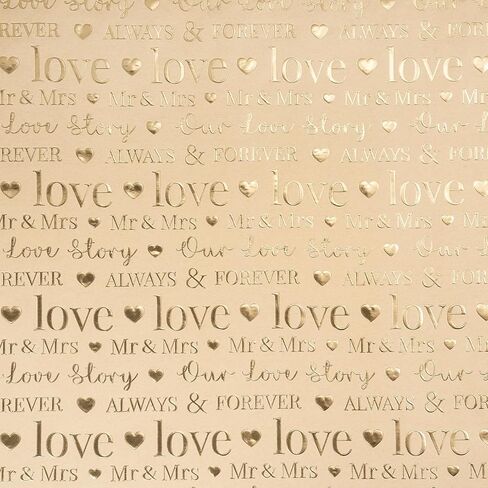 Love Story ♥ Our Love Story
REVER ♥ ALWAYS & FOREVER ♥ ALWAYS & F
♥ love ♥ love ♥ love ♥ love
Mr & Mrs ♥ Mr & Mrs ♥ Mr & Mrs ♥ Mr & Mrs
Love Story ♥ Our Love Story ♥ Our
REVER ♥ ALWAYS & FOREVER ♥ ALWAYS & F
♥ love ♥ love ♥ love ♥ love
Mr & Mrs ♥ Mr & Mrs ♥ Mr & Mrs ♥ Mr & Mrs
Love Story ♥ Our Love Story ♥ Our
REVER ♥ ALWAYS & FOREVER ♥ ALWAYS & F
♥ love ♥ love ♥ love ♥ love
Mr & Mrs ♥ Mr & Mrs ♥ Mr & Mrs ♥ Mr & Mrs
Love Story ♥ Our Love Story ♥ Our
REVER ♥ ALWAYS & FOREVER ♥ ALWAYS & F
♥ love ♥ love ♥ love ♥ love
Mr & Mrs ♥ Mr & Mrs ♥ Mr & Mrs ♥ Mr & Mrs